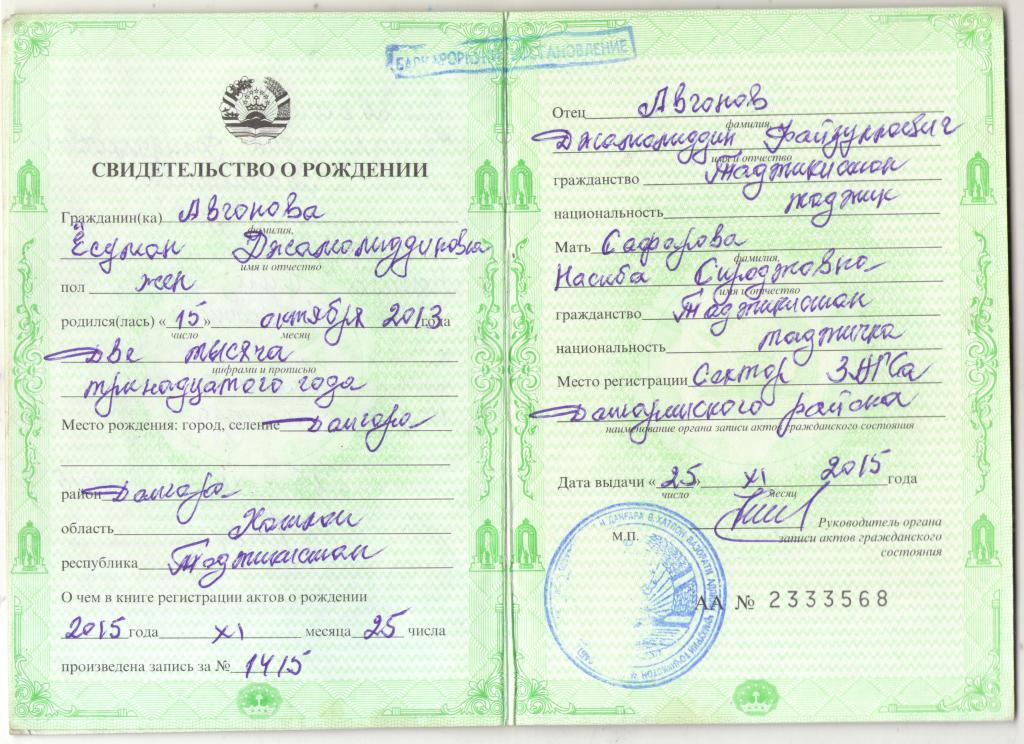 СВИДЕТЕЛЬСТВО О РОЖДЕНИИ
Гражданин(ка) Авгонова
фамилия,
Ёсуман Джамолиддиновна
имя и отчество
пол жен
родился(лась) «15» октября 2013 года
число месяц
две тысяча
цифрами и прописью
тринадцатого года
Место рождения: город, селение Дангара
район Дангара
область Хатлон
республика Таджикистан
О чем в книге регистрации актов о рождении
2015 года XI месяца 25 числа
произведена запись за № 1415
БАРҚАРОРКУНӢ ВОССТАНОВЛЕНИЕ
Отец Авгонов
фамилия
Джамолиддин Файзуллоевич
имя и отчество
гражданство Таджикистан
национальность таджик
Мать Сафарова
фамилия,
Насиба Сироджовна
имя и отчество
гражданство Таджикистан
национальность таджичка
Место регистрации Сектор ЗАГСа
Дангаринского района
наименование органа записи актов гражданского состояния
Дата выдачи «25» XI 2015 года
число месяц
М.П.
Руководитель органа
записи актов гражданского
состояния
АА № 2333568